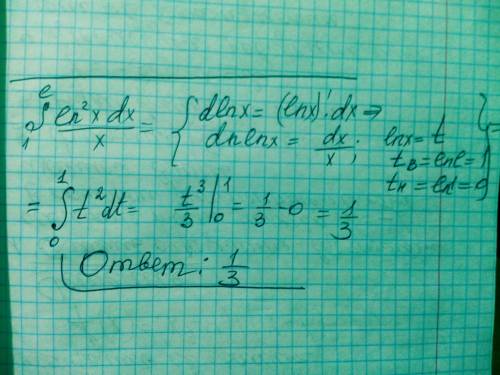 ∫₁ᵉ ln²x dx / x = { dlnx = (lnx)'·dx ⇒
dnlnx = dx/x; lnx = t
t_в = lne = 1
t_н = ln1 = 0 }
= ∫₀¹ t²dt = t³/3 |₀¹ = 1/3 - 0 = 1/3
Ответ: 1/3